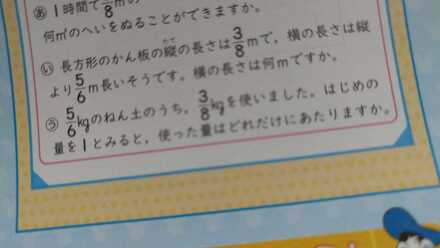 あ 1時間で 8 mの
何m²のへいをぬることができますか。
い 長方形のかん板の縦の長さは3/8mで，横の長さは縦
たて
より5/6m長いそうです。横の長さは何mですか。
う 5/6kgのねん土のうち，3/8kgを使いました。はじめの
量を1とみると，使った量はどれだけにあたりますか。